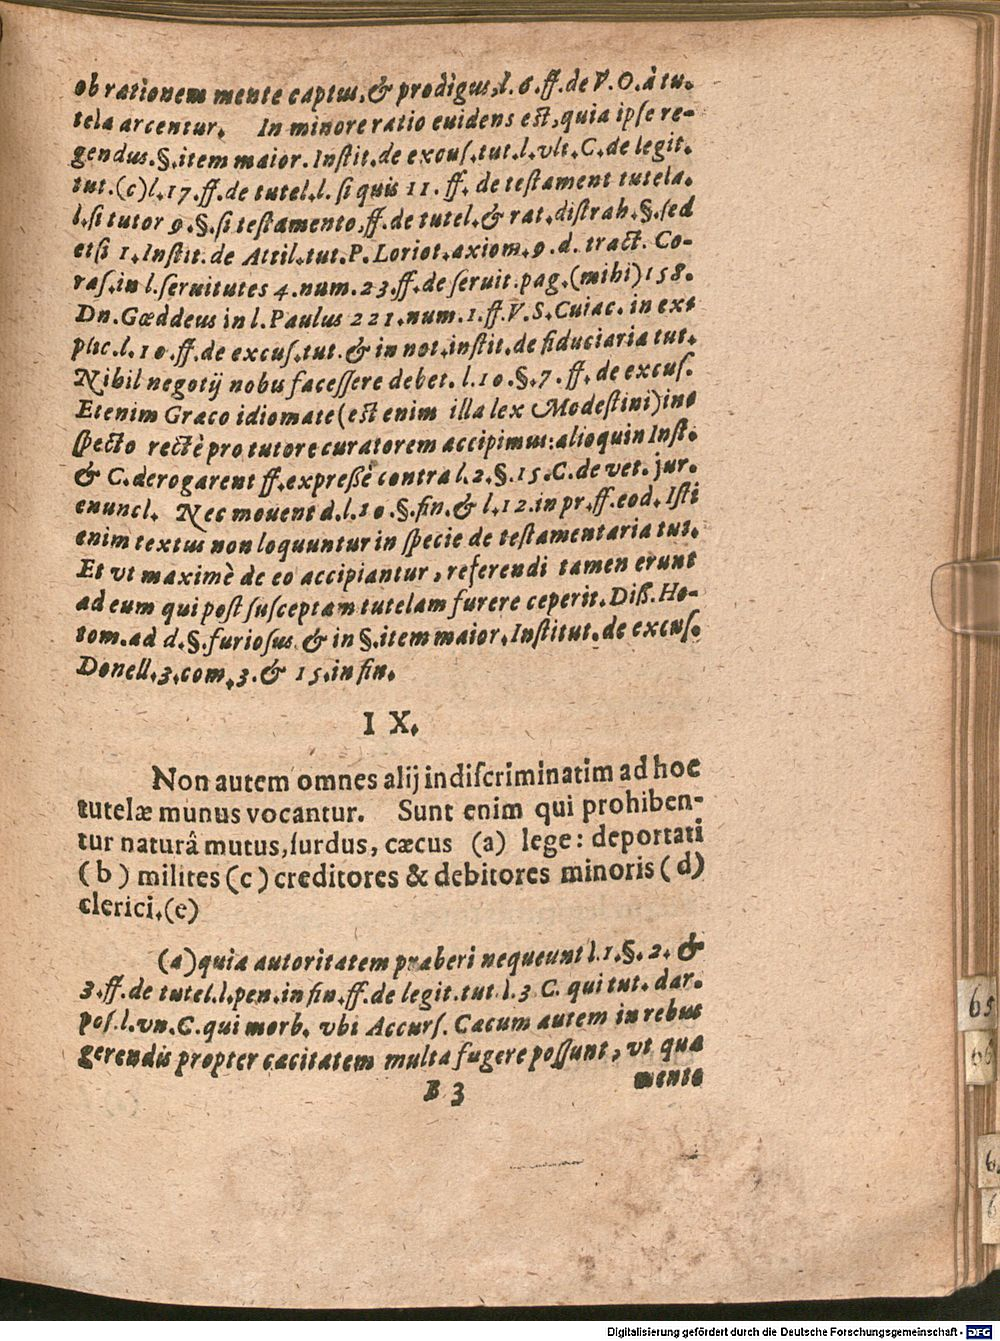 ob rationem mente captus, & prodigus, l. 6. ff. de V. O. à tu-
tela arcentur. In minore ratio euidens est, quia ipse re-
gendus. §. item maior. Instit. de excus. tut. l. vlt. C. de legit.
tut. (c) l. 17. ff. de tutel. l. si quis 11. ff. de testament tutela.
l. si tutor 9. §. si testamento, ff. de tutel. & rat. distrah. §. sed
etsi 1. Instit. de Attil. tut. P. Loriot. axiom. 9. d. tract. Co-
ras. in l. seruitutes 4. num. 23. ff. de seruit. pag. (mihi) 158.
Dn. Gœddeus in l. Paulus 221. num. 1. ff. V. S. Cuiac. in ex
plic. l. 10. ff. de excus. tut. & in not. instit. de fiduciaria tut.
Nihil negotij nobis facessere debet. l. 10. §. 7. ff. de excus.
Etenim Græco idiomate (est enim illa lex Modestini) in
specto rectè pro tutore curatorem accipimus: alioquin Inst.
& C. derogarent ff. expreßè contra l. 2. §. 15. C. de vet. jur.
enuncl. Nec mouent d. l. 10. §. fin. & l. 12. in pr. ff. eod. Isti
enim textus non loquuntur in specie de testamentaria tut.
Et vt maximè de eo accipiantur, referendi tamen erunt
ad eum qui post susceptam tutelam furere ceperit. Diß. Ho-
tom. ad d. §. furiosus & in §. item maior. Institut. de excus.
Donell. 3. com. 3. & 15. in fin.
I X.
Non autem omnes alij indiscriminatim ad hoc
tutelæ munus vocantur. Sunt enim qui prohiben-
tur naturâ mutus, surdus, cæcus (a) lege: deportati
(b) milites (c) creditores & debitores minoris (d)
clerici. (e)
(a) quia autoritatem præberi nequeunt l. 1. §. 2. &
3. ff. de tutel. l. pen. in fin. ff. de legit. tut l. 3 C. qui tut. dar.
pos. l. vn. C. qui morb. vbi Accurs. Cæcum autem in rebus
gerendis propter cæcitatem multa fugere possunt, vt quæ
B 3 mente
65
66
6
6
Digitalisierung gefördert durch die Deutsche Forschungsgemeinschaft - DFG